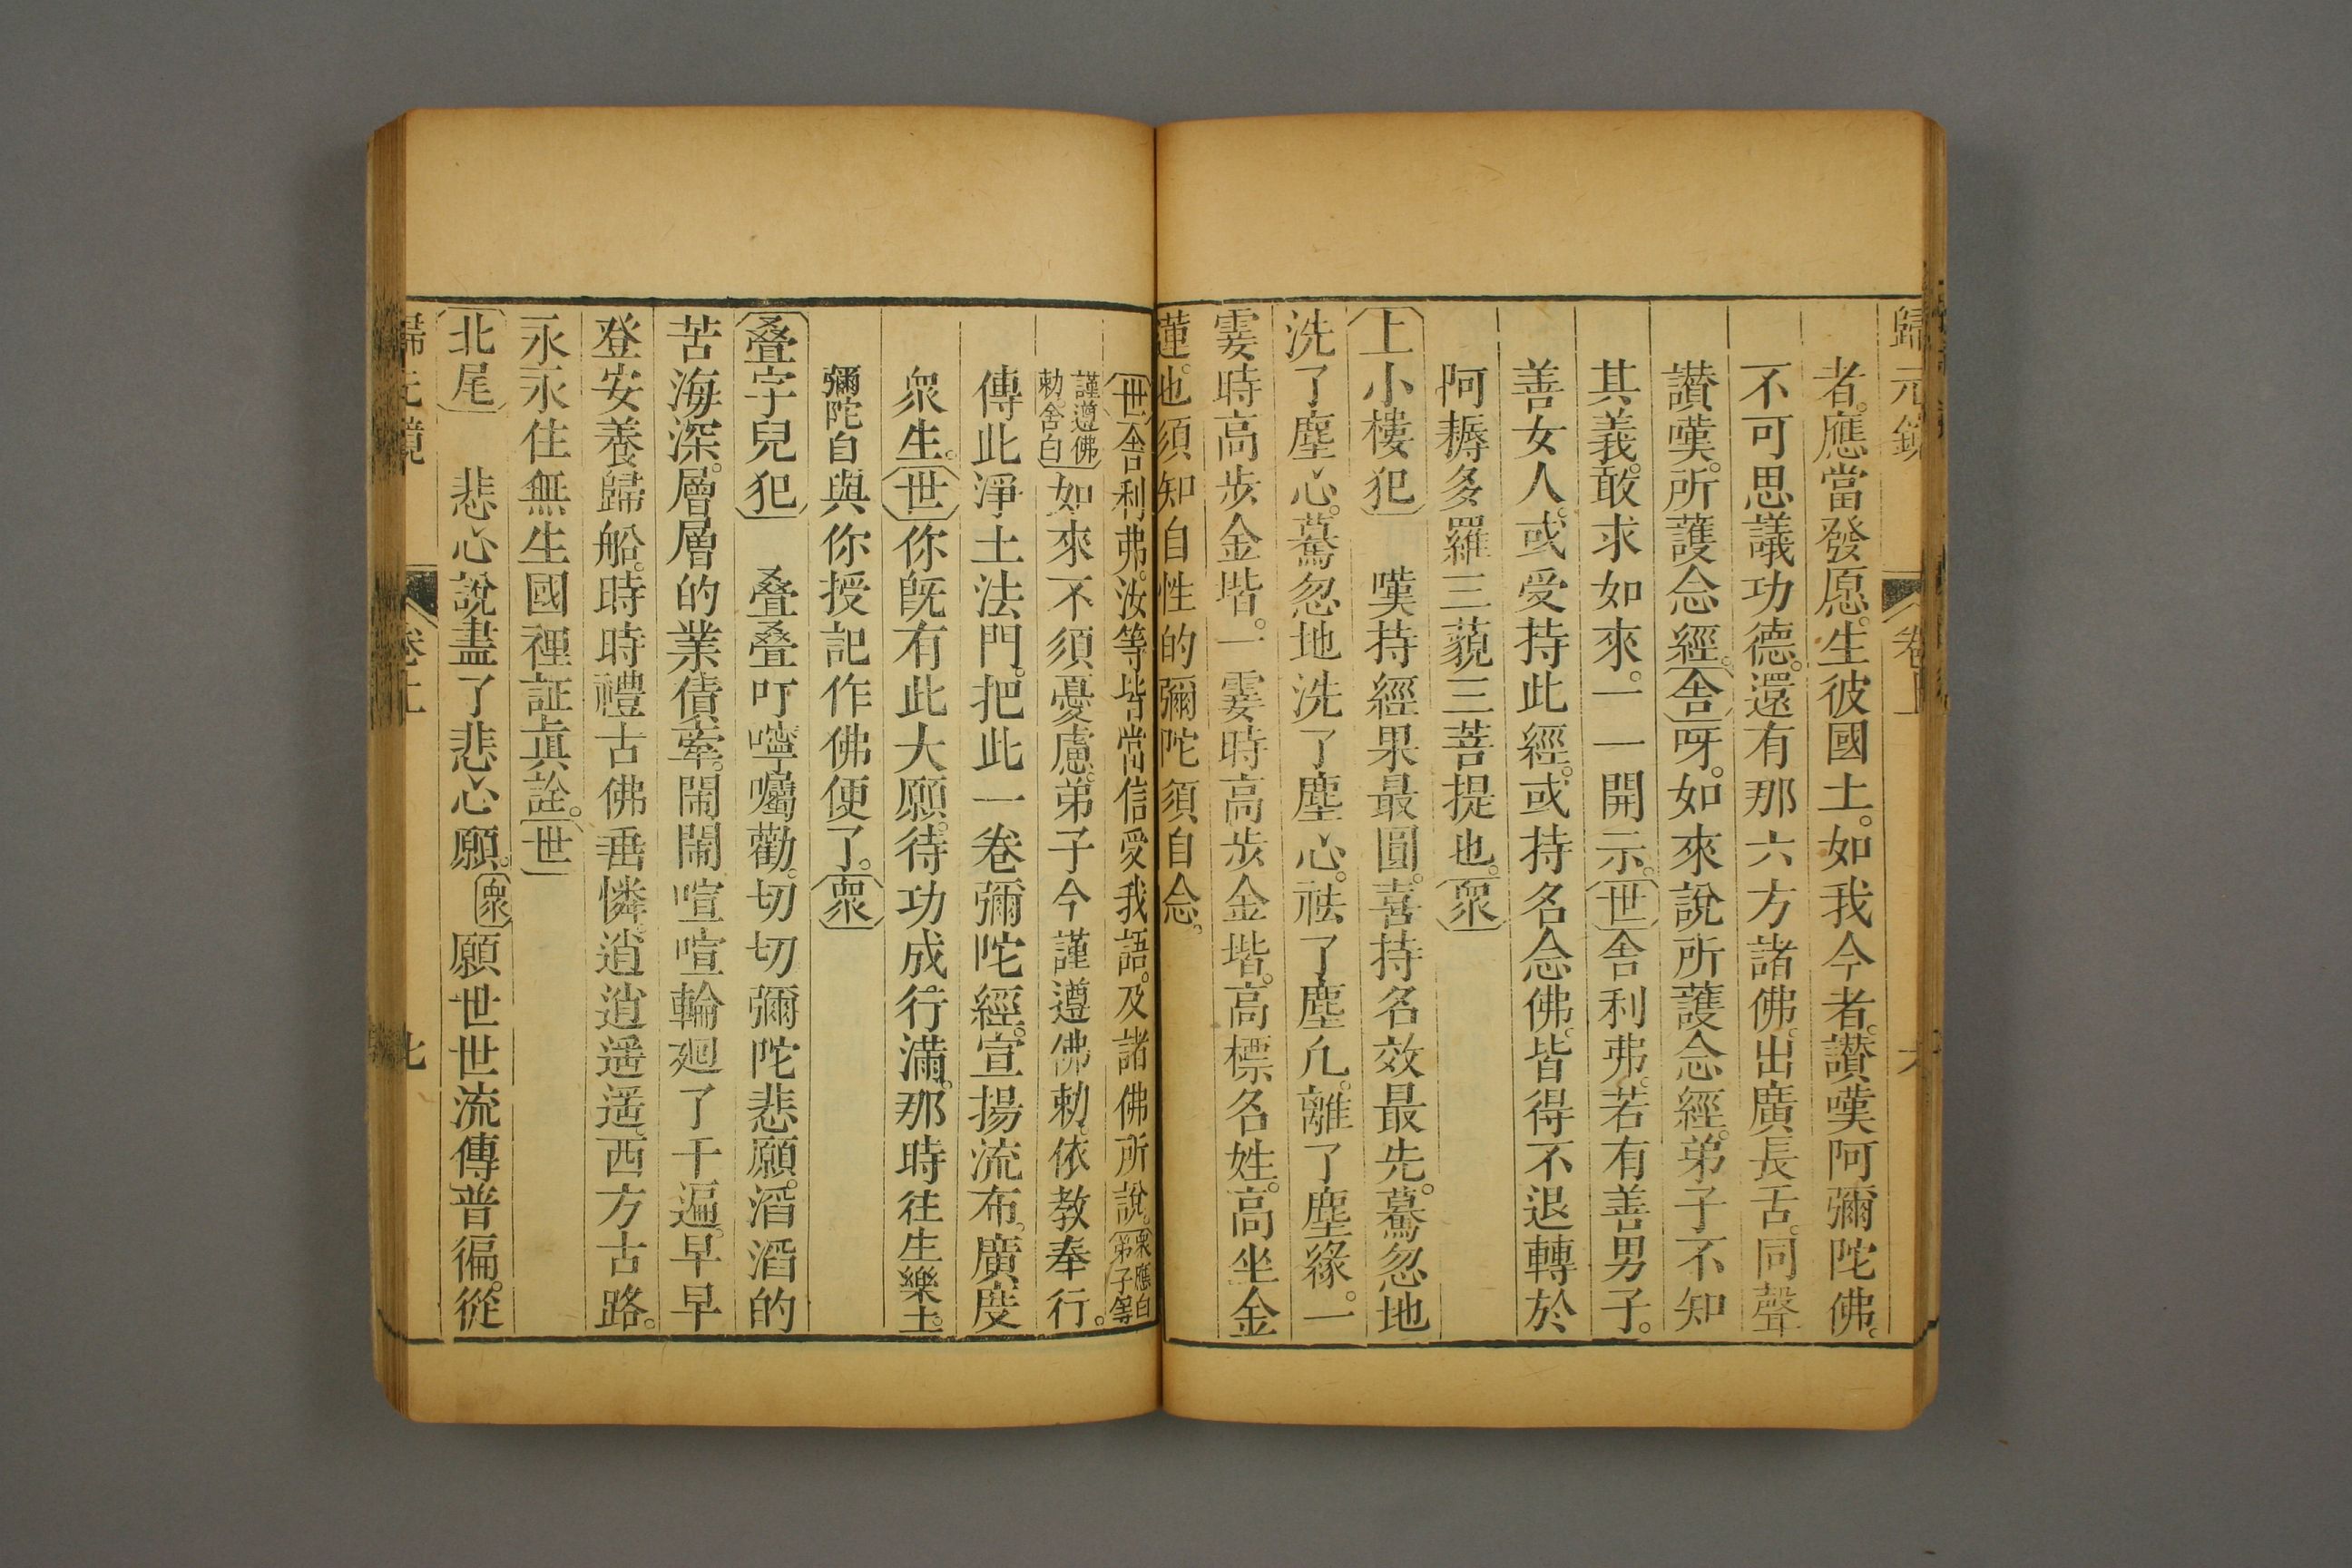 歸元鏡 卷上 六
者。應當發愿。生彼國土。如我今者。讚嘆阿彌陀佛。
不可思議功德。還有那六方諸佛。出廣長舌。同聲
讚嘆。所護念經。舍呀。如來說所護念經。弟子不知
其義。敢求如來。一一開示。世舍利弗。若有善男子。
善女人。或受持此經。或持名念佛。皆得不退轉於
阿耨多羅三藐三菩提也。眾
上小樓犯 嘆持經果最圓。喜持名效最先。驀忽地
洗了塵心。驀忽地洗了塵心。祛了塵凡。離了塵緣。一
霎時高步金堦。一霎時高步金堦。高標名姓。高坐金
蓮。也須知自性的彌陀須自念。
世舍利弗。汝等皆當信受我語。及諸佛所說。眾應白弟子等
謹遵佛勅。舍白如來不須憂慮。弟子今謹遵佛勅。依教奉行。
傳此淨土法門。把此一卷彌陀經。宣揚流布。廣度
眾生。世你既有此大願。待功成行滿。那時往生樂土。
彌陀自與你授記作佛便了。眾
叠字兒犯 叠叠叮嚀囑勸。切切彌陀悲願。滔滔的
苦海深。層層的業債牽。鬧鬧喧喧輪廻了千遍。早早
登安養歸船。時時禮古佛垂憐。逍逍遥遥。西方古路。
永永住無生國裡証眞詮。世
北尾 悲心說盡了悲心願。眾願世世流傳普徧。從
歸元鏡 卷上 七